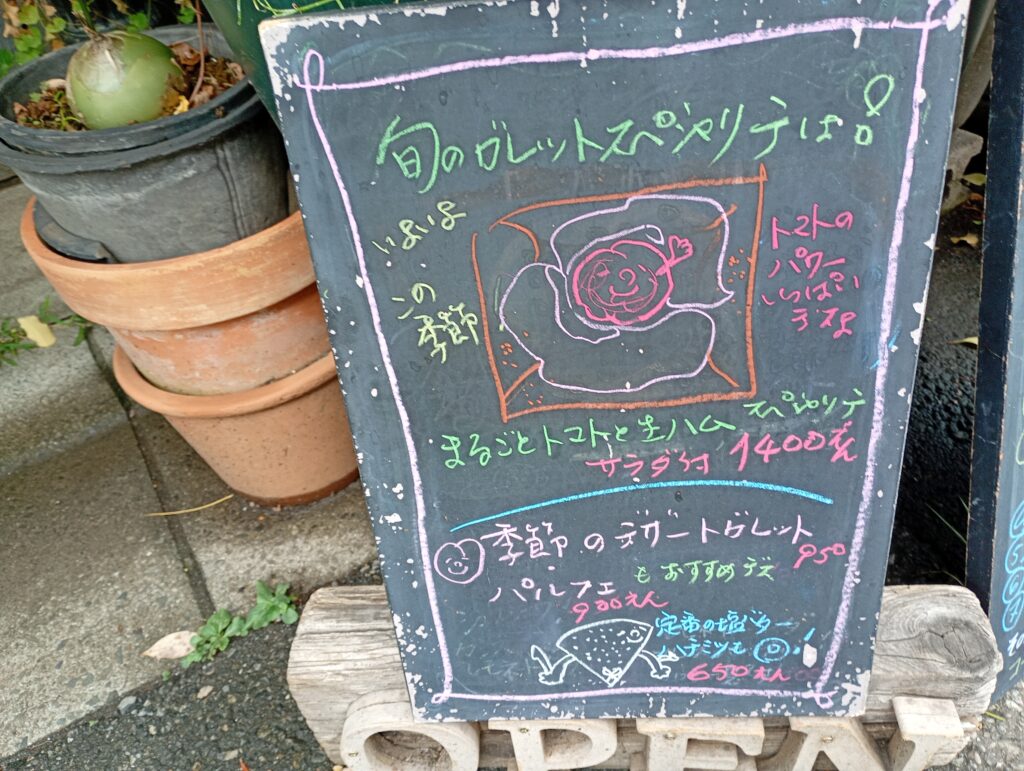 旬のガレットスペシャリテは!
いよいよ
この
季節
トマトの
パワー
いっぱい
デスよ
まるごとトマトと生ハム スペシャリテ
サラダ付 1400えん
季節のデザートガレット
950
パルフェ もおすすめデス
900えん
定番の塩バター
ハチミツも
650えん
OPEN